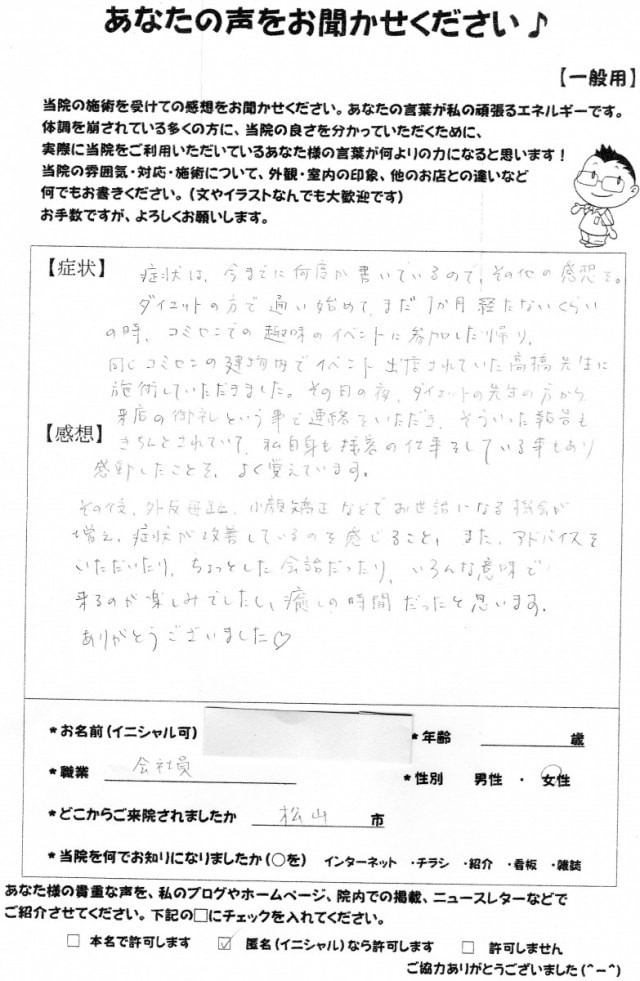 あなたの声をお聞かせください♪
【一般用】
当院の施術を受けての感想をお聞かせください。あなたの言葉が私の頑張るエネルギーです。
体調を崩されている多くの方に、当院の良さを分かっていただくために、
実際に当院をご利用いただいているあなた様の言葉が何よりの力になると思います！
当院の雰囲気・対応・施術について、外観・室内の印象、他のお店との違いなど
何でもお書きください。（文やイラストなんでも大歓迎です）
お手数ですが、よろしくお願いします。
【症状】
症状は、今までに何度か書いているので、その他の感想を。
ダイエットの方で通い始めて、まだ1か月経たないくらい
の時、コミセンでの趣味のイベントに参加した帰り、
同じコミセンの建物内でイベント出店されていた高橋先生に
施術していただきました。その日の夜、ダイエットの先生の方から
来店の御礼という事で連絡をいただき、そういった報告も
【感想】
きちんとされていて、私自身も接客の仕事をしている事もあり
感動したことを、よく覚えています。
その後、外反母趾、小顔矯正などでお世話になる機会が
増え、症状が改善しているのを感じること、また、アドバイスを
いただいたり、ちょっとした会話だったり、いろんな意味で
来るのが楽しみでしたし、癒しの時間だったと思います。
ありがとうございました♡
*お名前（イニシャル可）
*年齢 歳
*職業 会社員
*性別 男性 ・ 女性
*どこからご来院されましたか 松山 市
*当院を何でお知りになりましたか（○を） インターネット ・チラシ ・紹介 ・看板 ・雑誌
あなた様の貴重な声を、私のブログやホームページ、院内での掲載、ニュースレターなどで
ご紹介させてください。下記の□にチェックを入れてください。
□ 本名で許可します ☑ 匿名（イニシャル）なら許可します □ 許可しません
ご協力ありがとうございました（^－^）